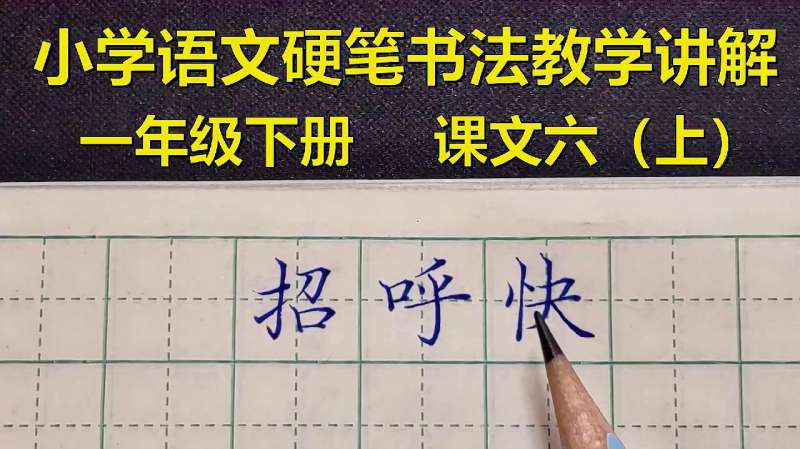 小学语文硬笔书法教学讲解
一年级下册 课文六（上）
招呼快